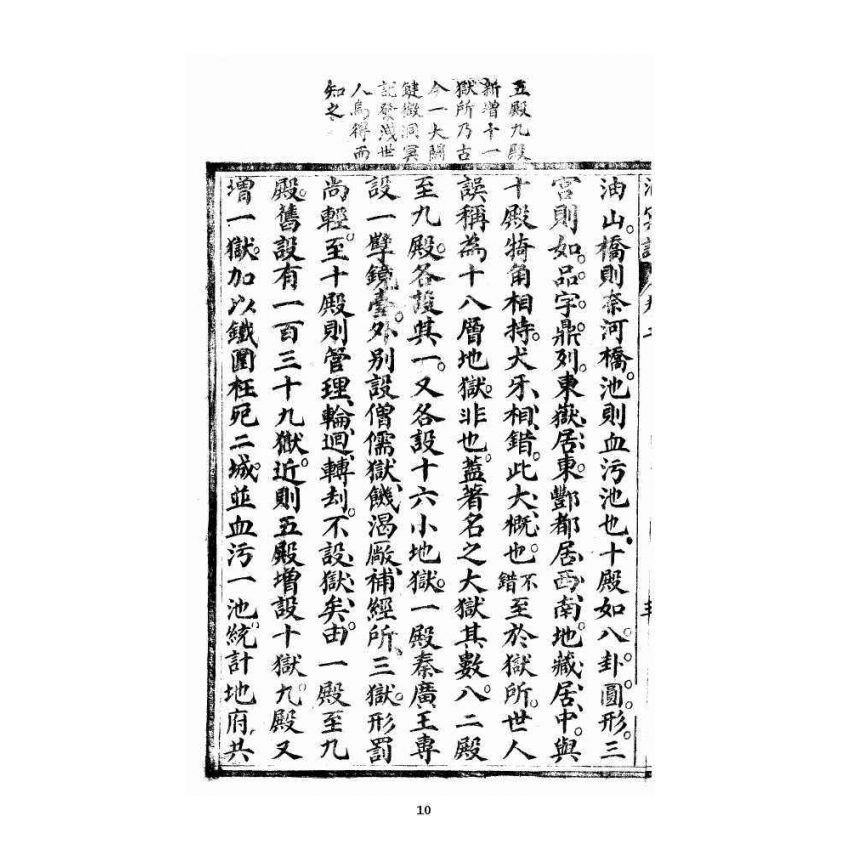 五殿九殿
新增十一
獄所乃古
今一大關
鍵微洞冥
記發淺世
人烏得而
知之
油山。橋則奈河橋。池則血污池也。十殿如八卦圓形。三
宮則如品字鼎列。東嶽居東。酆都居西南。地藏居中。與
十殿犄角相持。犬牙相錯。此大概也。不錯至於獄所。世人
誤稱為十八層地獄。非也。蓋著名之大獄其數八。二殿
至九殿。各設其一。又各設十六小地獄。一殿秦廣王專
設一孽鏡臺。外別設僧儒獄、饑渴廠、補經所、三獄。形罰
尚輕。至十殿則管理輪迴轉刦。不設獄矣。由一殿至九
殿。舊設有一百三十九獄。近則五殿增設十獄。九殿又
增一獄。加以鐵圍枉死二城。並血污一池。統計地府。共
10